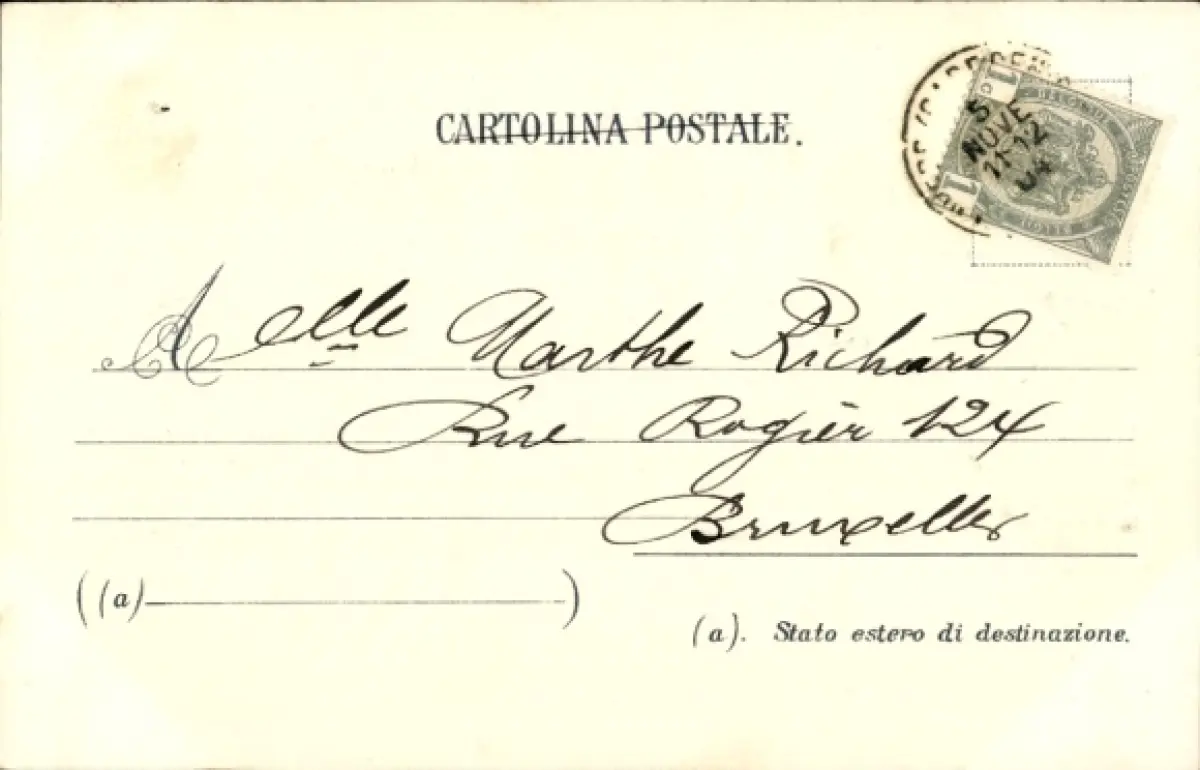 CARTOLINA POSTALE.
1 c
BELGIQUE
5
NOVE
11-12
04
1
BELGIË
A elle Marthe Richard
Rue Rogier 124
Bruxelles
((a) )
(a). Stato estero di destinazione.